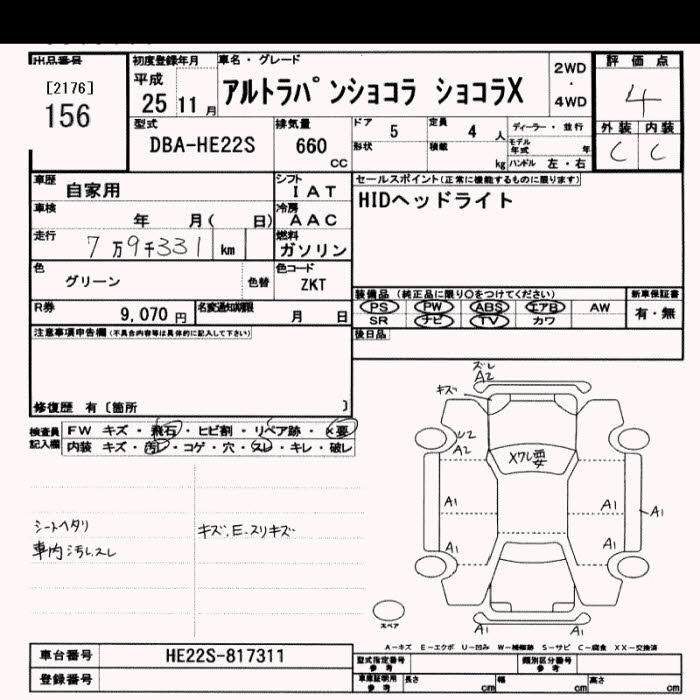 出品番号
[2176]
156
初度登録年月
平成
25 11 月
車名・グレード
アルトラパンショコラ ショコラX
2WD
・
4WD
評価点
4
外装 内装
C C
型式
DBA-HE22S
排気量
660
cc
ドア 5
形状
定員 4 人
積載 kg
ディーラー・並行
モデル年式 年
ハンドル 左・右
車歴 自家用
シフト IAT
車検 年 月( 日)
冷房 AAC
走行 7万9千331 km
燃料 ガソリン
色 グリーン 色替
色コード ZKT
R券 9,070 円
名変通知期限 月 日
セールスポイント(正常に機能するものに限ります)
HIDヘッドライト
装備品 (純正品に限り○をつけてください)
PS PW ABS エアB AW
SR ナビ TV カワ
新車保証書
有・無
後日品
注意事項申告欄(不具合内容等は具体的に記入して下さい)
修復歴 有〔箇所 〕
検査員記入欄
FW キズ・飛石・ヒビ割・リペア跡・×要
内装 キズ・汚・コゲ・穴・スレ・キレ・破レ
シートヘタリ
車内汚レスレ
キズ、E-スリキズ
ズレ
A2
キズ
A2
Xワレ要
A1
A1
A1
A1
A1
A1
A1
A1
スペア
A-キズ E-エクボ U-凹み W-補修跡 S-サビ C-腐食 XX-交換済
車台番号 HE22S-817311
登録番号
型式指定番号
参考
類別区分番号
参考
車庫証明用
参考
長さ cm 幅 cm 高さ cm